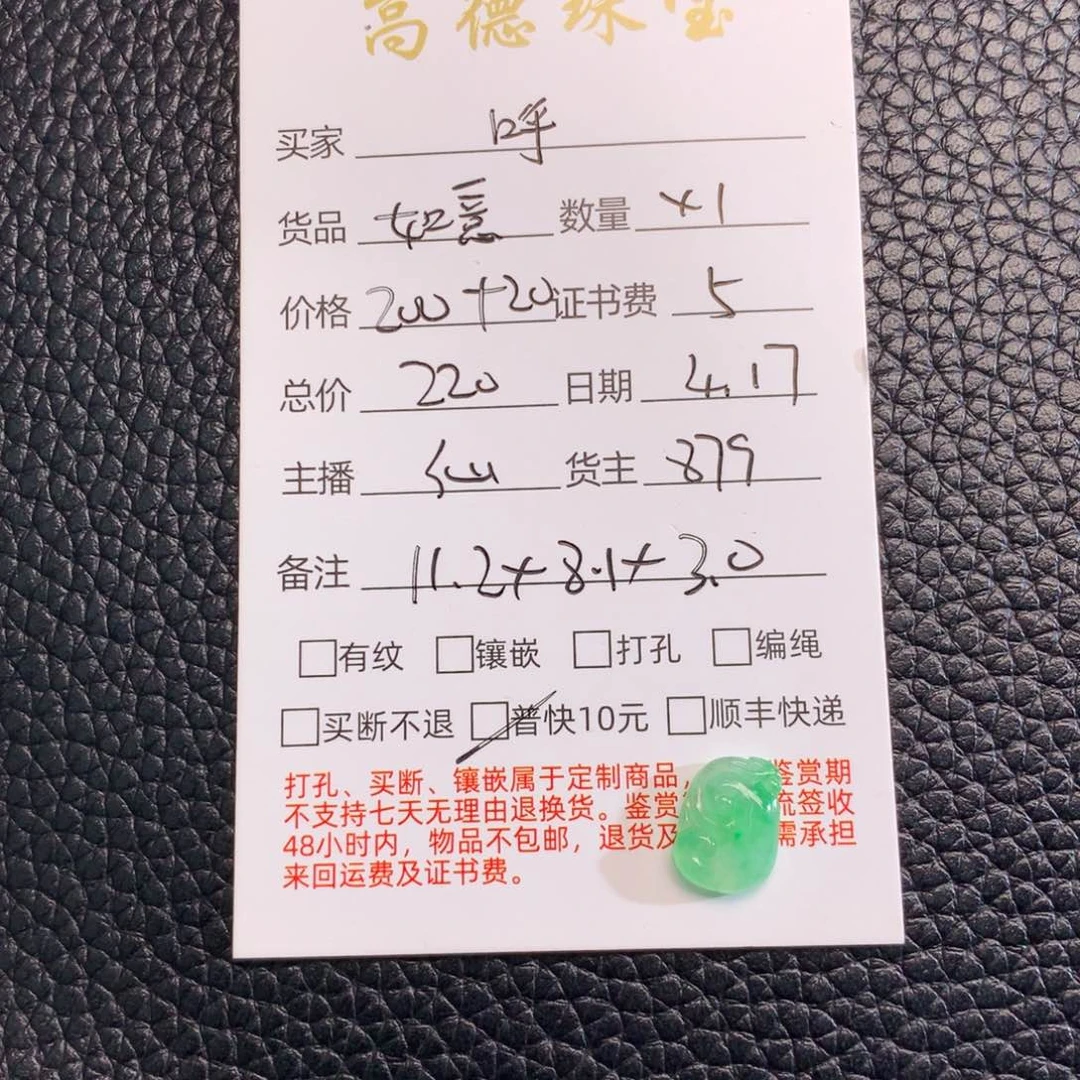 高德珠宝
买家 呼
货品 如意 数量 ×1
价格 200+20 证书费 5
总价 220 日期 4.17
主播 货主 879
备注 11.2×8.1×3.0
□有纹 □镶嵌 □打孔 □编绳
□买断不退 □普快10元 □顺丰快递
打孔、买断、镶嵌属于定制商品, 鉴赏期
不支持七天无理由退换货。鉴赏 流签收
48小时内，物品不包邮，退货及 需承担
来回运费及证书费。